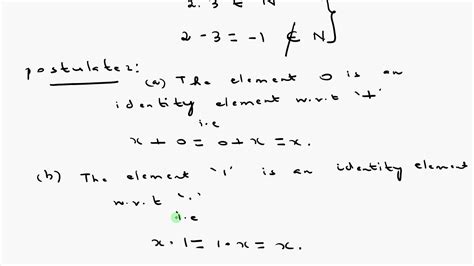 2. 3 ∈ N
2 - 3 = -1 ∉ N }
postulate2:
(a) The element 0 is an
identity element w.r.t '+'
i.e
x + 0 = 0 + x = x.
(b) The element '1' is an identity element
w.r.t '.'
i.e
x . 1 = 1 . x = x.